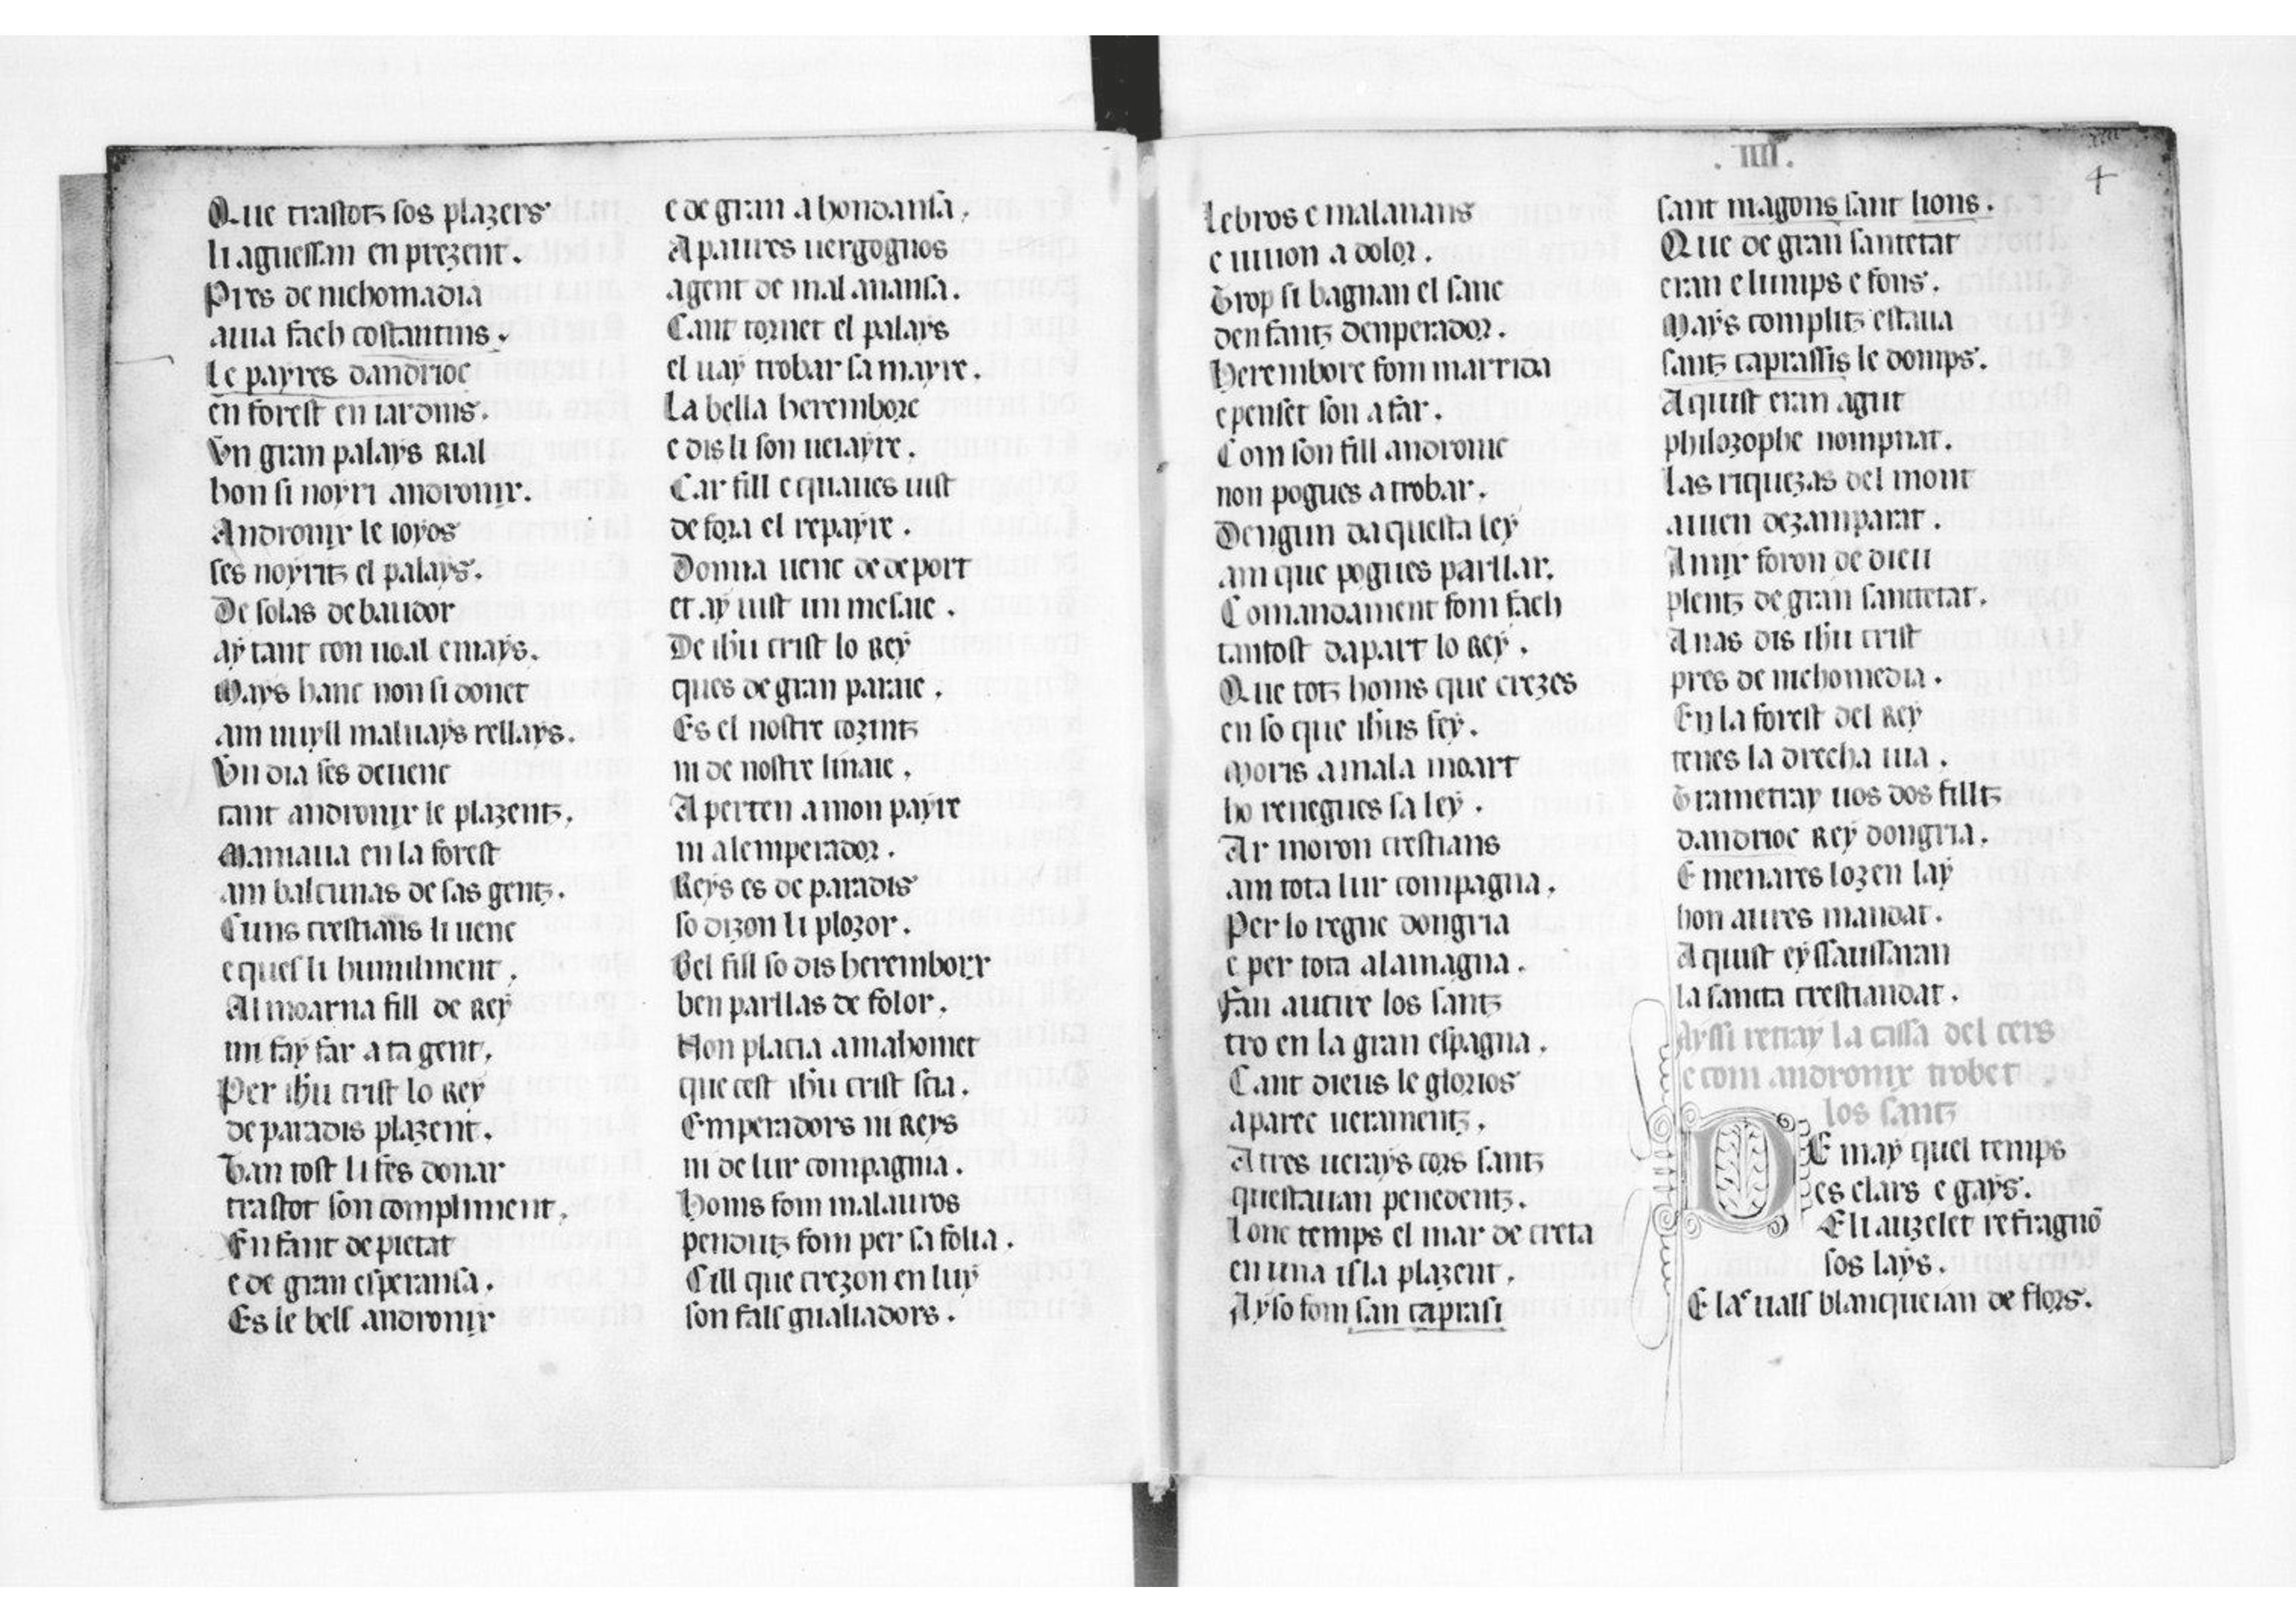 Que trastotz sos plazers
li aguessan en prezent.
Pres de nichomadia
auia fach costantins.
Le payres dandrioc
en forest en iardins.
Vn gran palays rial
hon si noyri andronix.
Andronix le ioyos
ses noyritz el palays.
De solas de baudor
aytant con ual e mays.
Mays hanc non si donet
am nuyll maluays rellays.
Vn dia ses deuenc
tant andronix le plazentz.
Maniaua en la forest
am balcunas de sas gentz.
Cuns crestians li uenc
e ques li humilment.
Almoarna fill de rey
mi fay far a ta gent.
Per ihu crist lo rey
de paradis plazent.
Tan tost li fes donar
trastot son compliment.
Enfant de pietat
e de gran esperansa.
Es le bell andronix
e de gran abondansa.
A paures uergognos
agent de mal anansa.
Cant tornet el palays
el uay trobar sa mayre.
La bella herembore
e dis li son ueiayre.
Car fill e quaues uist
de fora el repayre.
Donna uenc de deport
et ay uist un mesaie.
De ihu crist lo rey
ques de gran paraie.
Es el nostre cozintz
ni de nostre linaie.
A perten a mon payre
ni alemperador.
Reys es de paradis
so dizon li plozor.
Bel fill so dis heremborx
ben parllas de folor.
Non placia a mahomet
que cest ihu crist sia.
Emperadors ni reys
ni de lur compagnia.
Homs fom malauros
pendutz fom per sa folia.
Cill que crezon en luy
son fals gualiadors.
.IIII.
4
Lebros e malanans
e uiuon a dolor.
Trop si bagnan el sanc
den fantz denperador.
Herembore fom marrida
e penset son afar.
Com son fill andronic
non pogues atrobar.
Dengun daquesta ley
am que pogues parllar.
Comandament fom fach
tantost dapart lo rey.
Que totz homs que crezes
en so que ihus fey.
Moris a mala moart
ho renegues sa ley.
Ar moron crestians
am tota lur compagna.
Per lo regne dongria
e per tota alamagna.
Fan aucire los santz
tro en la gran espagna.
Cant dieus le glorios
aparec ueramentz.
A tres uerays cors santz
questauan penedentz.
Lonc temps el mar de creta
en una isla plazent.
Ayso fom san caprasi
sant magons sant lions.
Que de gran santetat
eran e lumps e fons.
Mays complitz estaua
santz caprassis le domps.
Aquist eran agut
philozophe nompnat.
Las riquezas del mont
auien dezamparat.
Amix foron de dieu
plentz de gran sanctetat.
Anas dis ihu crist
pres de nichomedia.
En la forest del rey
tenes la drecha uia.
Trametray uos dos filltz
dandrioc rey dongria.
E menares lozen lay
hon aures mandat.
Aquist eyssaussaran
la sancta crestiandat.
Ayssi retray la cassa del cers
e com andronix trobet
los santz
DE may quel temps
es clars e gays.
E li auzelet refragnon
sos lays.
E las uals blanqueian de flors.